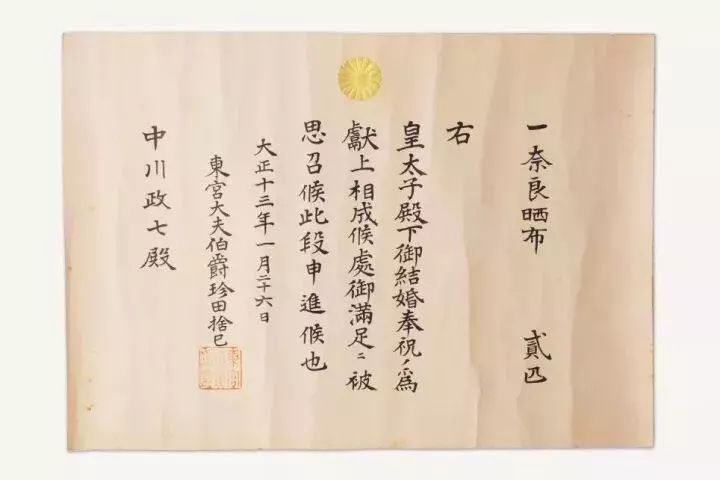 一奈良晒布　貳匹
右
皇太子殿下御結婚奉祝ノ為
獻上相成候處御滿足ニ被
思召候此段申進候也
大正十三年一月二十六日
東宮大夫伯爵珍田捨巳
中川政七殿